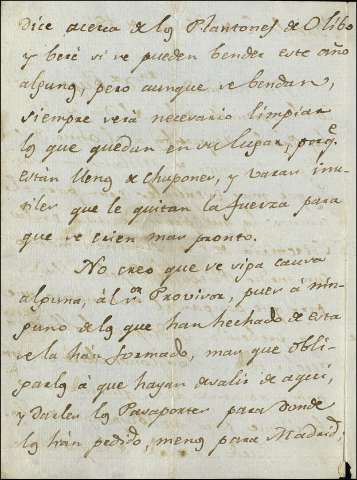 Dice acerca de los Plantones de Olibo
y beré si se pueden bender este año
algunos, pero aunque se bendan,
siempre será necesario limpiar
los que quedan en su lugar, porq.e
están llenos de chupones, y varas inu-
tiles que le quitan la fuerza para
que se crien mas pronto.
No creo que se siga causa
alguna, al s.or Provisor, pues á nin-
guno de los que han hechado de esta
se la han formado, mas que obli-
garlos á que hayan de salir de aquí,
y darles los Pasaportes para donde
los han pedido, menos para Madrid,